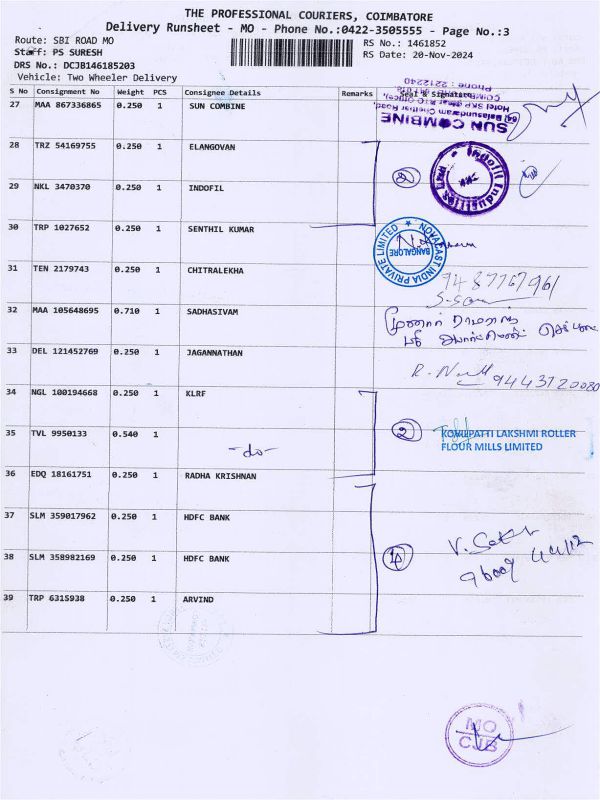 THE PROFESSIONAL COURIERS, COIMBATORE
Delivery Runsheet - MO - Phone No.:0422-3505555 - Page No.:3
Route: SBI ROAD MO
Staff: PS SURESH
DRS No.: DCJB146185203
Vehicle: Two Wheeler Delivery
RS No.: 1461852
RS Date: 20-Nov-2024
S No Consignment No Weight PCS Consignee Details Remarks Seal & Signature
27 MAA 867336865 0.250 1 SUN COMBINE
SUN COMBINE
28 TRZ 54169755 0.250 1 ELANGOVAN
29 NKL 3470370 0.250 1 INDOFIL
Indofil Industries
30 TRP 1027652 0.250 1 SENTHIL KUMAR
NOVACAST INDIA PRIVATE LIMITED
BANGALORE
31 TEN 2179743 0.250 1 CHITRALEKHA
9487767961
32 MAA 105648695 0.710 1 SADHASIVAM
33 DEL 121452769 0.250 1 JAGANNATHAN
9443720080
34 NGL 100194668 0.250 1 KLRF
2
KOVILPATTI LAKSHMI ROLLER
FLOUR MILLS LIMITED
35 TVL 9950133 0.540 1 -do-
36 EDQ 18161751 0.250 1 RADHA KRISHNAN
37 SLM 359017962 0.250 1 HDFC BANK
38 SLM 358982169 0.250 1 HDFC BANK
39 TRP 6315938 0.250 1 ARVIND
MO
CJB